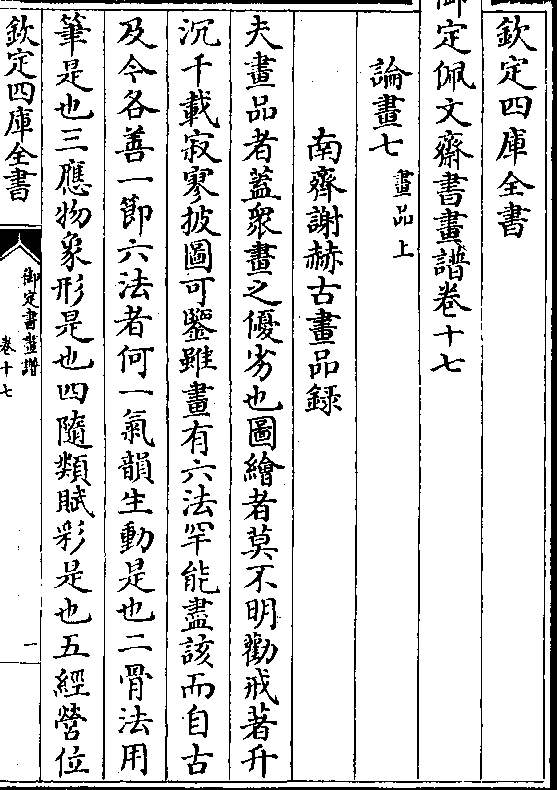 欽定四庫全書
御定佩文齋書畫譜卷十七
論畫七 畫品上
南齊謝赫古畫品録
夫畫品者蓋衆畫之優劣也圖繪者莫不明勸戒著升
沉千載寂寥披圖可鑒雖畫有六法罕能盡該而自古
及今各善一節六法者何一氣韻生動是也二骨法用
筆是也三應物象形是也四隨類賦彩是也五經營位
欽定四庫全書
御定書畫譜
卷十七
一